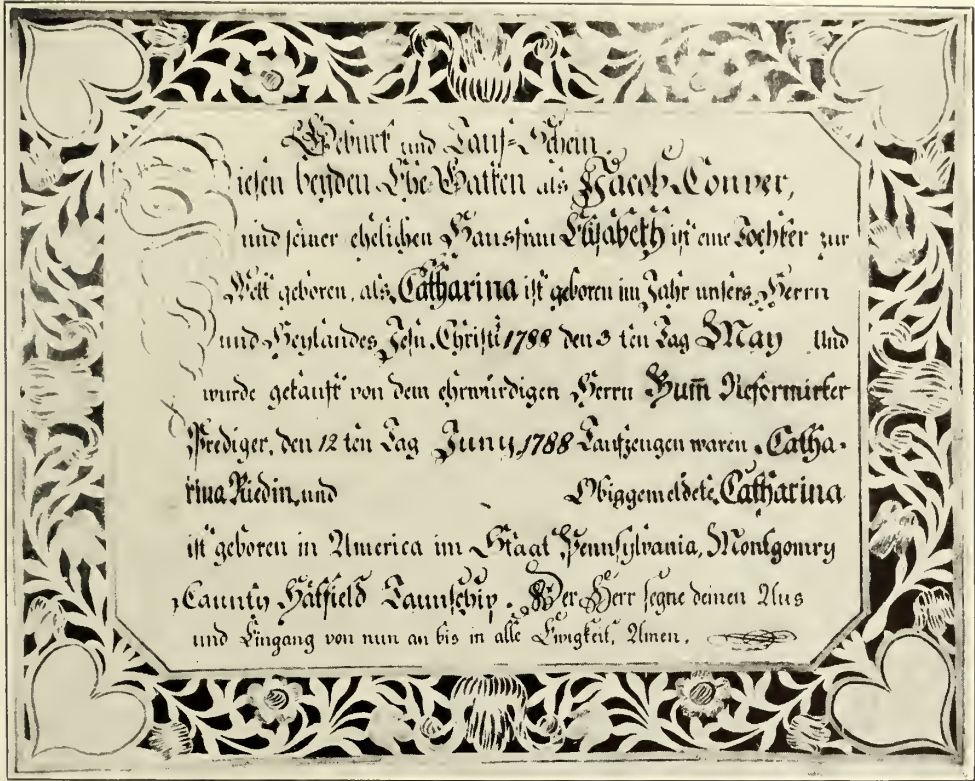 Geburt und Tauf=Schein.
Diesen beyden Ehe=Gatten als Jacob Conver,
und seiner ehelichen Hausfrau Elisabeth ist eine Tochter zur
Welt geboren, als Catharina ist geboren im Jahr unsers Herrn
und Heylandes Jesu Christi 1788 den 3 ten Tag May Und
wurde getauft von dem ehrwürdigen Herrn Reformirter
Prediger, den 12 ten Tag Juny 1788 Taufzeugen waren Catha-
rina Riedin, und Obiggemeldete Catharina
ist geboren in America im Staat Pennsylvania, Montgomry
Caunty Hatfield Taunschip. Der Herr segne deinen Aus
und Eingang von nun an bis in alle Ewigkeit, Amen.